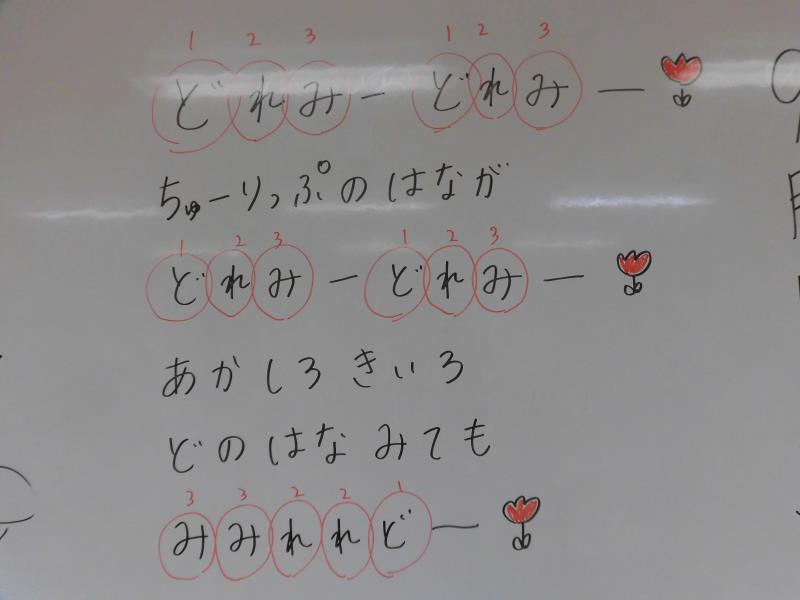 1 2 3 1 2 3
どれみー どれみー
ちゅーりっぷのはなが
1 2 3 1 2 3
どれみーどれみー
あかしろきいろ
どのはなみても
3 3 2 2 1
みみれれどー